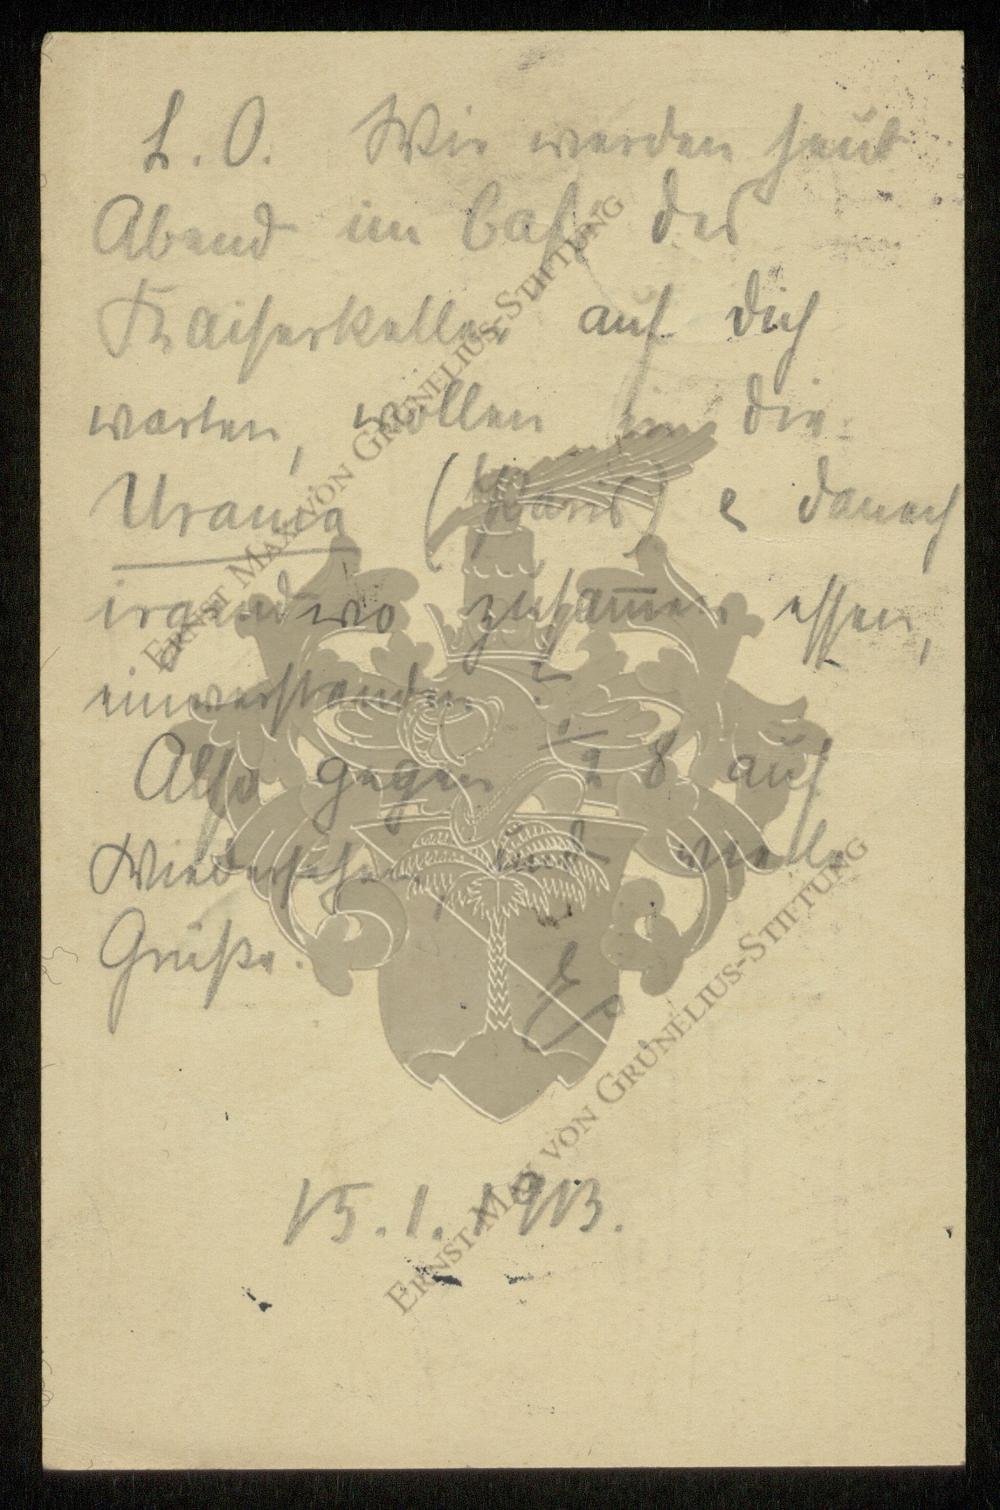 L. O. Wir werden heut
Abend im Café des
Kaiserkeller auf Dich
warten, wollen in die
Urania (Paris) & danach
irgendwo zusam̅en essen,
einverstanden?
Also gegen ½ 8 auf
Wiedersehen und viele
Grüße.
15.1.1913.
ERNST MAX VON GRÜNELIUS-STIFTUNG
ERNST MAX VON GRÜNELIUS-STIFTUNG